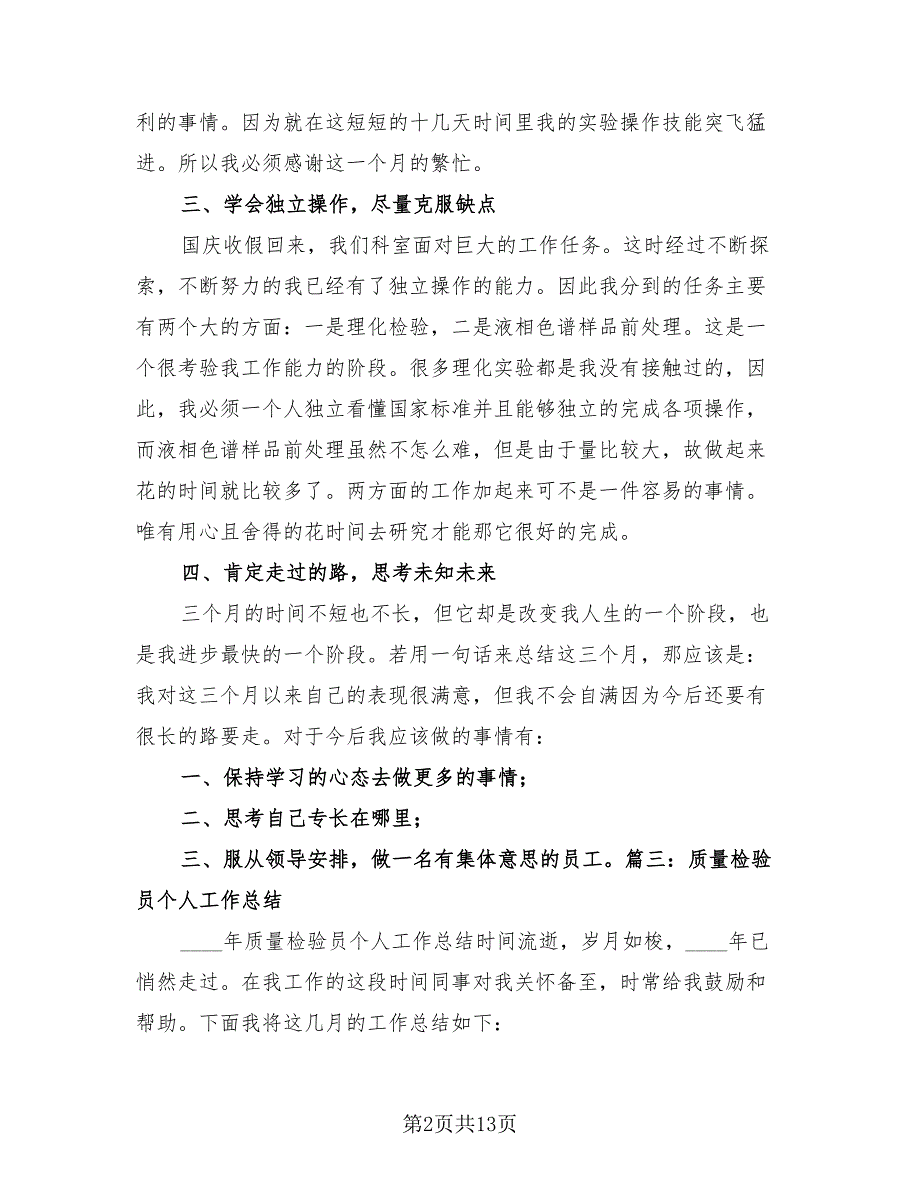 利的事情。因为就在这短短的十几天时间里我的实验操作技能突飞猛
进。所以我必须感谢这一个月的繁忙。
三、学会独立操作，尽量克服缺点
国庆收假回来，我们科室面对巨大的工作任务。这时经过不断探
索，不断努力的我已经有了独立操作的能力。因此我分到的任务主要
有两个大的方面：一是理化检验，二是液相色谱样品前处理。这是一
个很考验我工作能力的阶段。很多理化实验都是我没有接触过的，因
此，我必须一个人独立看懂国家标准并且能够独立的完成各项操作，
而液相色谱样品前处理虽然不怎么难，但是由于量比较大，故做起来
花的时间就比较多了。两方面的工作加起来可不是一件容易的事情。
唯有用心且舍得的花时间去研究才能那它很好的完成。
四、肯定走过的路，思考未知未来
三个月的时间不短也不长，但它却是改变我人生的一个阶段，也
是我进步最快的一个阶段。若用一句话来总结这三个月，那应该是：
我对这三个月以来自己的表现很满意，但我不会自满因为今后还要有
很长的路要走。对于今后我应该做的事情有：
一、保持学习的心态去做更多的事情；
二、思考自己专长在哪里；
三、服从领导安排，做一名有集体意思的员工。篇三：质量检验
员个人工作总结
____年质量检验员个人工作总结时间流逝，岁月如梭，____年已
悄然走过。在我工作的这段时间同事对我关怀备至，时常给我鼓励和
帮助。下面我将这几月的工作总结如下：
第2页共13页